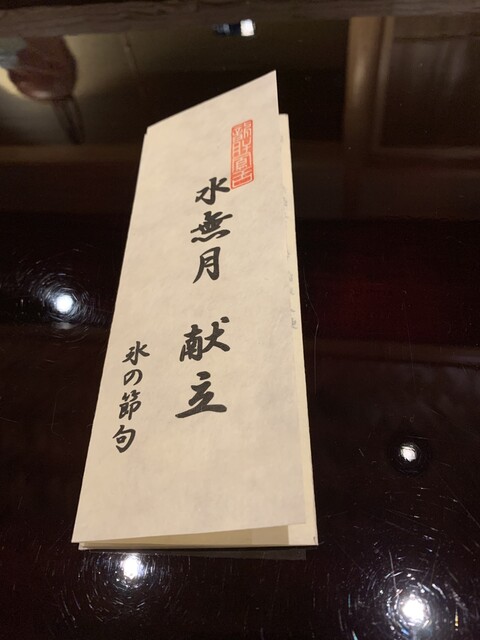 水無月 献立
氷の節句